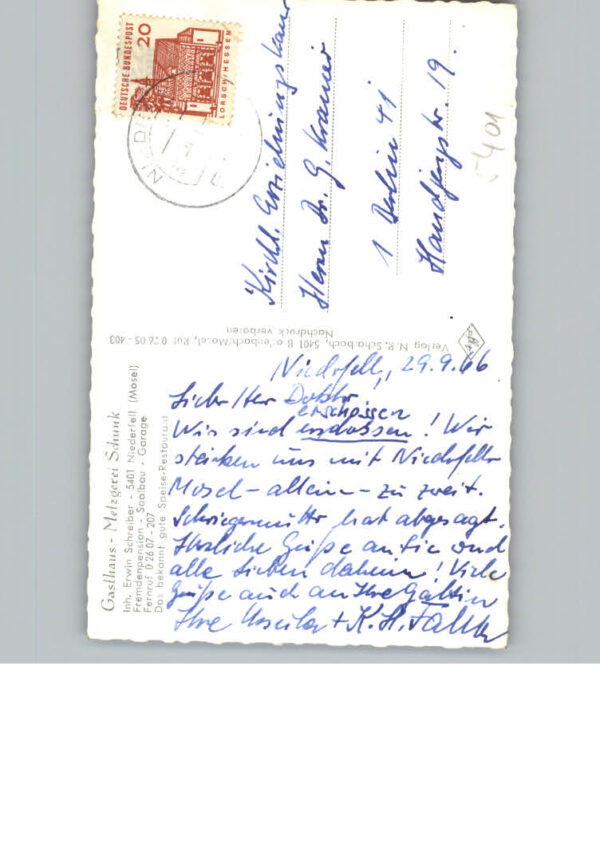 DEUTSCHE BUNDESPOST
20
LORSCH/HESSEN
Kirchl. Erziehungskam
Herrn Dr. G. Kramer
1 Berlin 41
Handjerystr. 19.
5401
Verlag N. R. Scharbach, 5401 B
Nachdruck verboten
Gasthaus - Metzgerei Schunk
Inh. Erwin Schreiber - 5401 Niederfell (Mosel)
Fremdenpension - Saalbau - Garage
Fernruf 0 26 07 - 207
Das bekannt gute Speise-Restaurant
Niederfell, 29.9.66
Lieber Herr Doktor
erschossen
Wir sind erschossen! Wir
stärken uns mit Niederfeller
Mosel - allein - zu zweit.
Schwiegermutter hat abgesagt.
Herzliche Grüße an Sie und
alle Lieben daheim! Viele
Grüße auch an Ihre Gattin
Ihre Ursula + K. H.